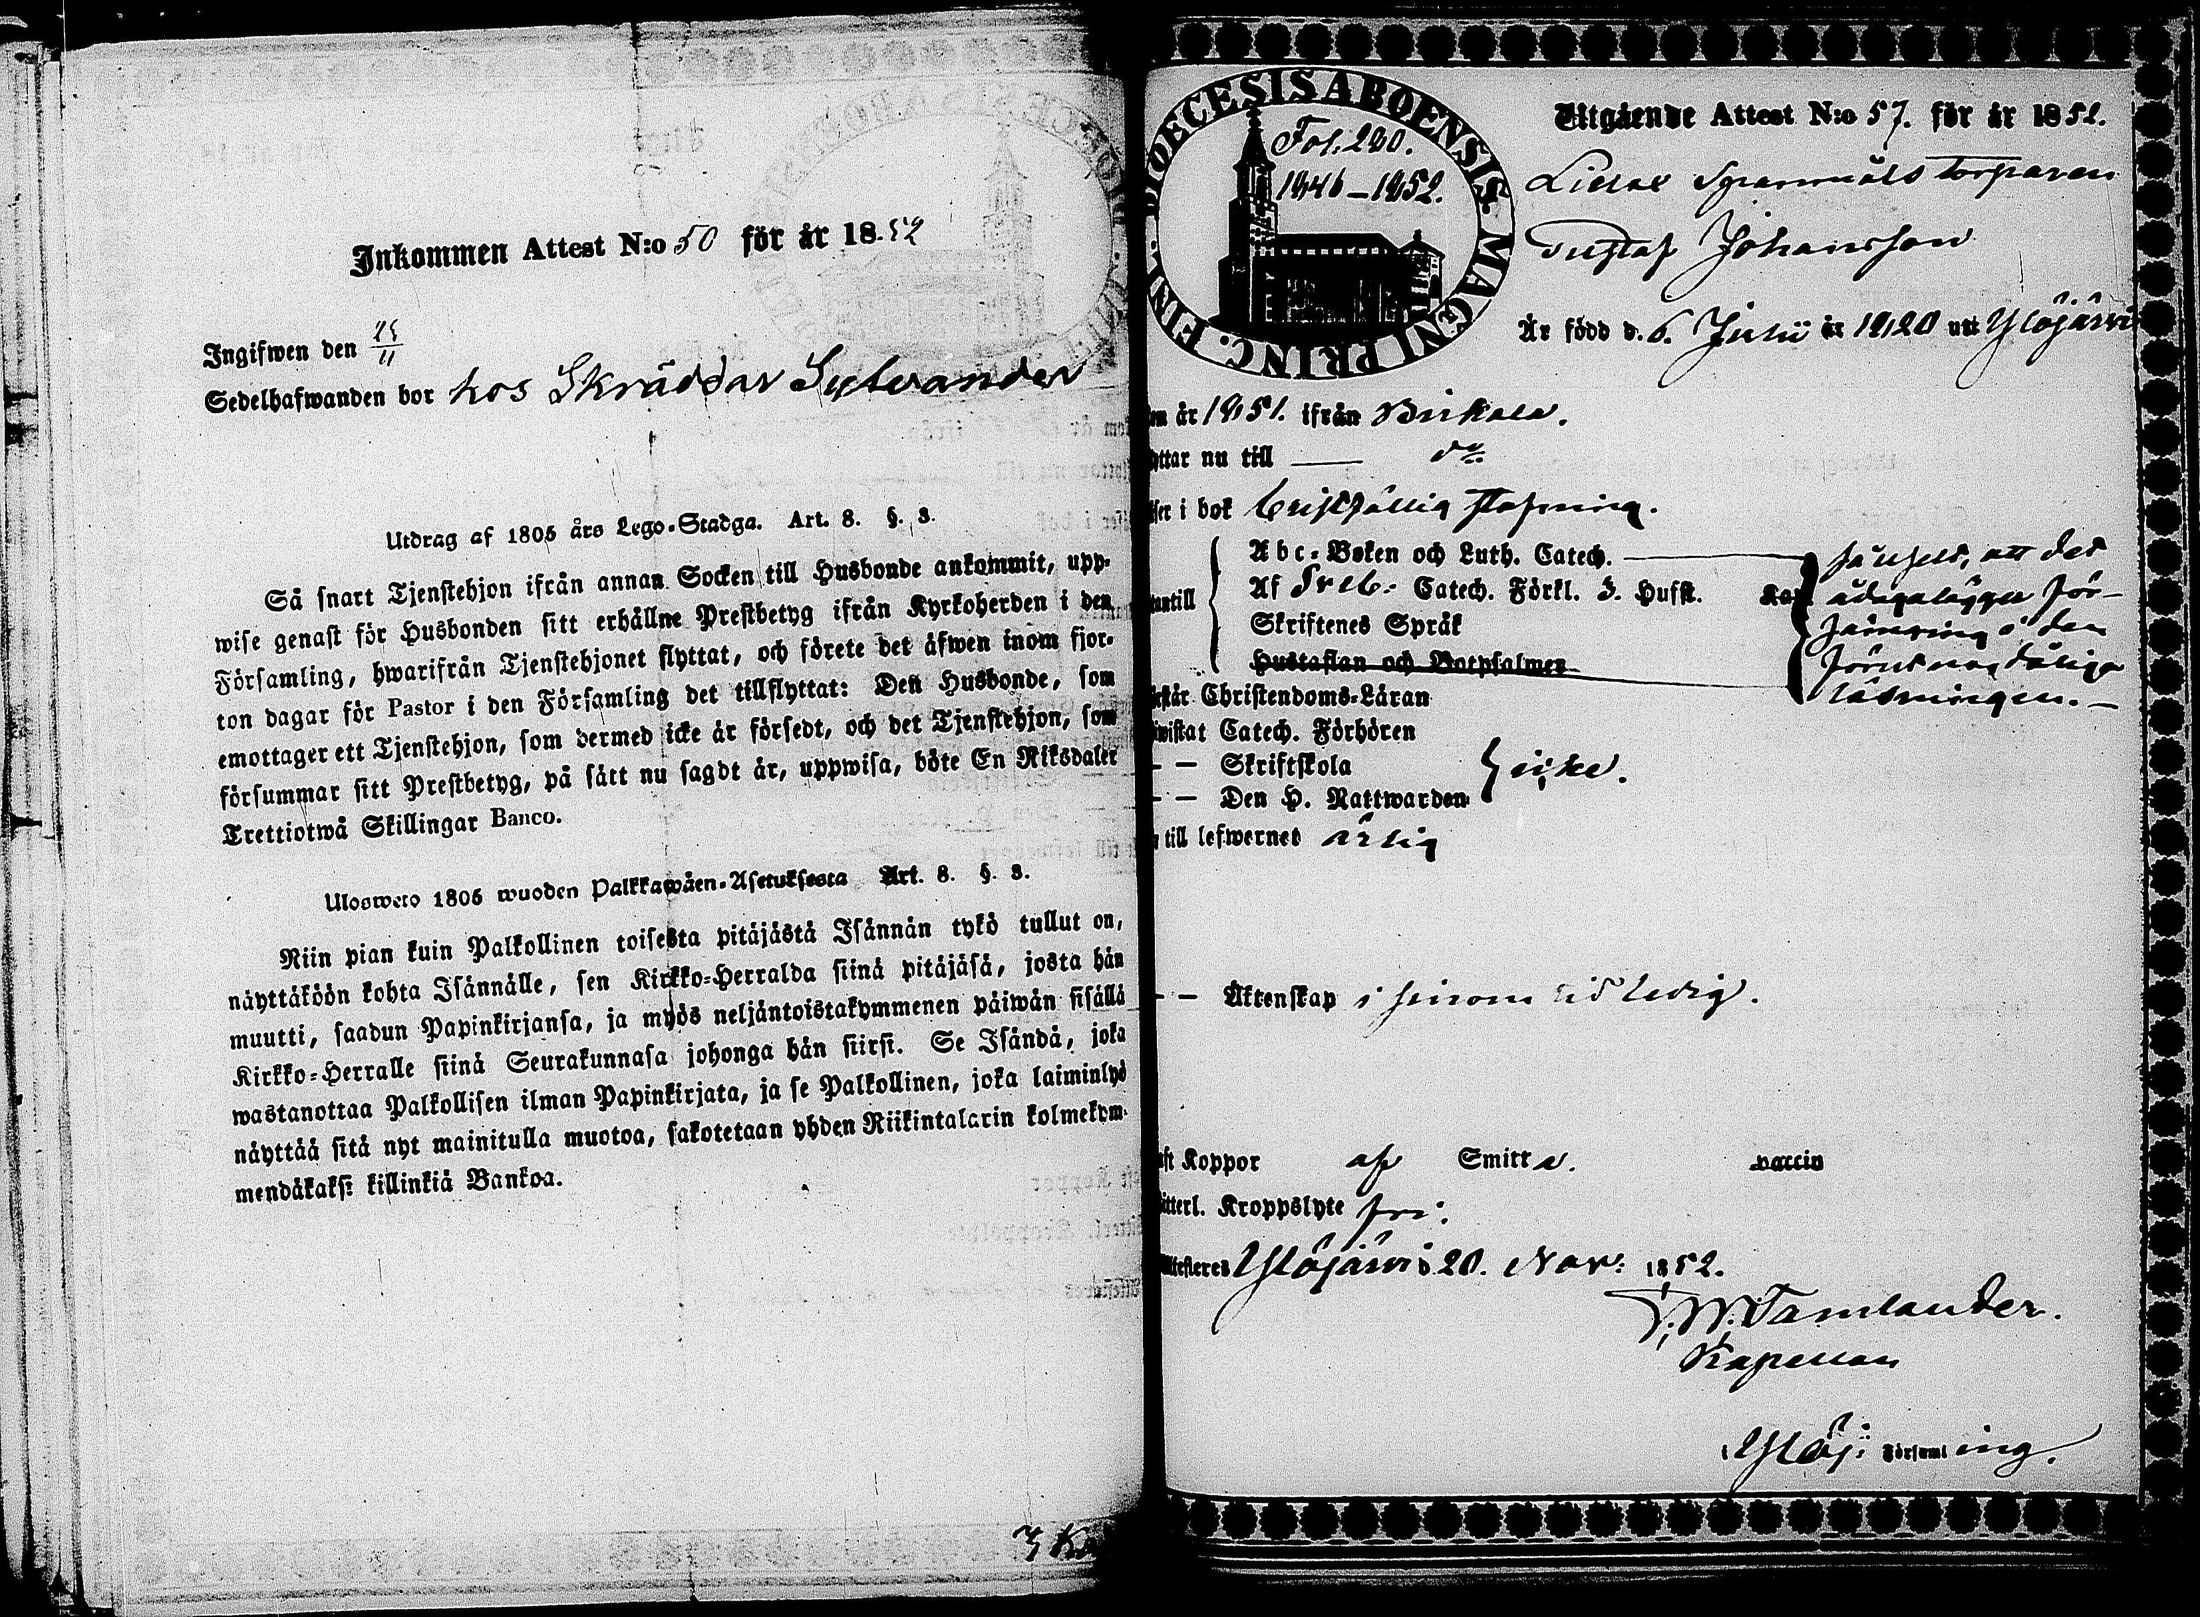 Inkommen Attest N:o 50 för år 18.52
Ingifwen den 25/11
Sedelhafwanden bor hos Skräddar Sylvander
Utdrag af 1805 års Lego-Stadga. Art. 8. §. 3.
Så snart Tjenstehjon ifrån annan Socken till Husbonde ankommit, upp-
wise genast för Husbonden sitt erhållne Prestbetyg ifrån Kyrkoherden i den
Församling, hwarifrån Tjenstehjonet flyttat, och förete det äfwen inom fjor-
ton dagar för Pastor i den Församling det tillflyttat: Den Husbonde, som
emottager ett Tjenstehjon, som dermed icke är försedt, och det Tjenstehjon, som
försummar sitt Prestbetyg, på sätt nu sagdt är, uppwisa, böte En Riksdaler
Trettiotwå Skillingar Banco.
Ulosweto 1805 wuoden Palkkawäen-Asetuksesta Art. 8. §. 3.
Niin pian kuin Palkollinen toisesta pitäjästä Isännän tykö tullut on,
näyttäköön kohta Isännälle, sen Kirkko-Herralda siinä pitäjäsä, josta hän
muutti, saadun Papinkirjansa, ja myös neljäntoistakymmenen päiwän sisällä
Kirkko-Herralle siinä Seurakunnasa johonga hän siirsi. Se Isändä, joka
wastanottaa Palkollisen ilman Papinkirjata, ja se Palkollinen, joka laiminlyö
näyttää sitä nyt mainitulla muotoa, sakotetaan yhden Riikintalarin kolmekym-
mendäkaksi killinkiä Bankoa.
DIOECESIS ABOENSIS. MAGNI PRINC. FINL.
Fol. 280.
1846–1852.
Utgående Attest N:o 57. för år 1852.
torparen
Gustaf Johansson
Är född d. 6. Julii år 1820 uti Ylöjärvi
om år 1851. ifrån Birkala.
yttar nu till — d:o
ser i bok bristfällig stafning.
Abc-Boken och Luth. Catech.
Af Sveb: Catech. Förkl. 3. Hufst.
Skriftenes Språk
Hustaflan och Botpsalmer
ådagalägger för-
i den
läsningen. —
står Christendoms-Läran
wistat Catech. Förhören
— — Skriftskola
— — Den H. Nattwarden
icke.
till lefwernet ärlig
— — Äktenskap i sinom tid ledig.
ft Koppor af Smitta. vaccin
itterl. Kroppslyte fri.
Attesteres Ylöjärvi d. 20. Nov: 1852.
Tamlander.
Kapellan
i Ylöj: Församling.